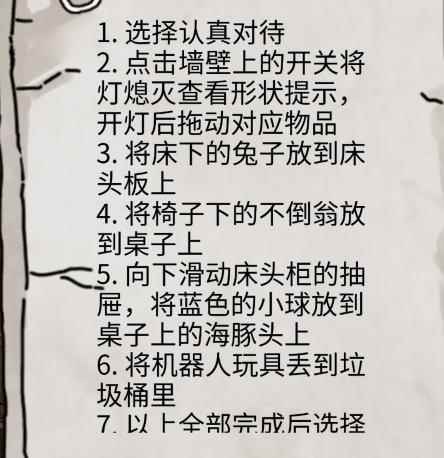 1. 选择认真对待
2. 点击墙壁上的开关将
灯熄灭查看形状提示，
开灯后拖动对应物品
3. 将床下的兔子放到床
头板上
4. 将椅子下的不倒翁放
到桌子上
5. 向下滑动床头柜的抽
屉，将蓝色的小球放到
桌子上的海豚头上
6. 将机器人玩具丢到垃
圾桶里
7. 以上全部完成后选择